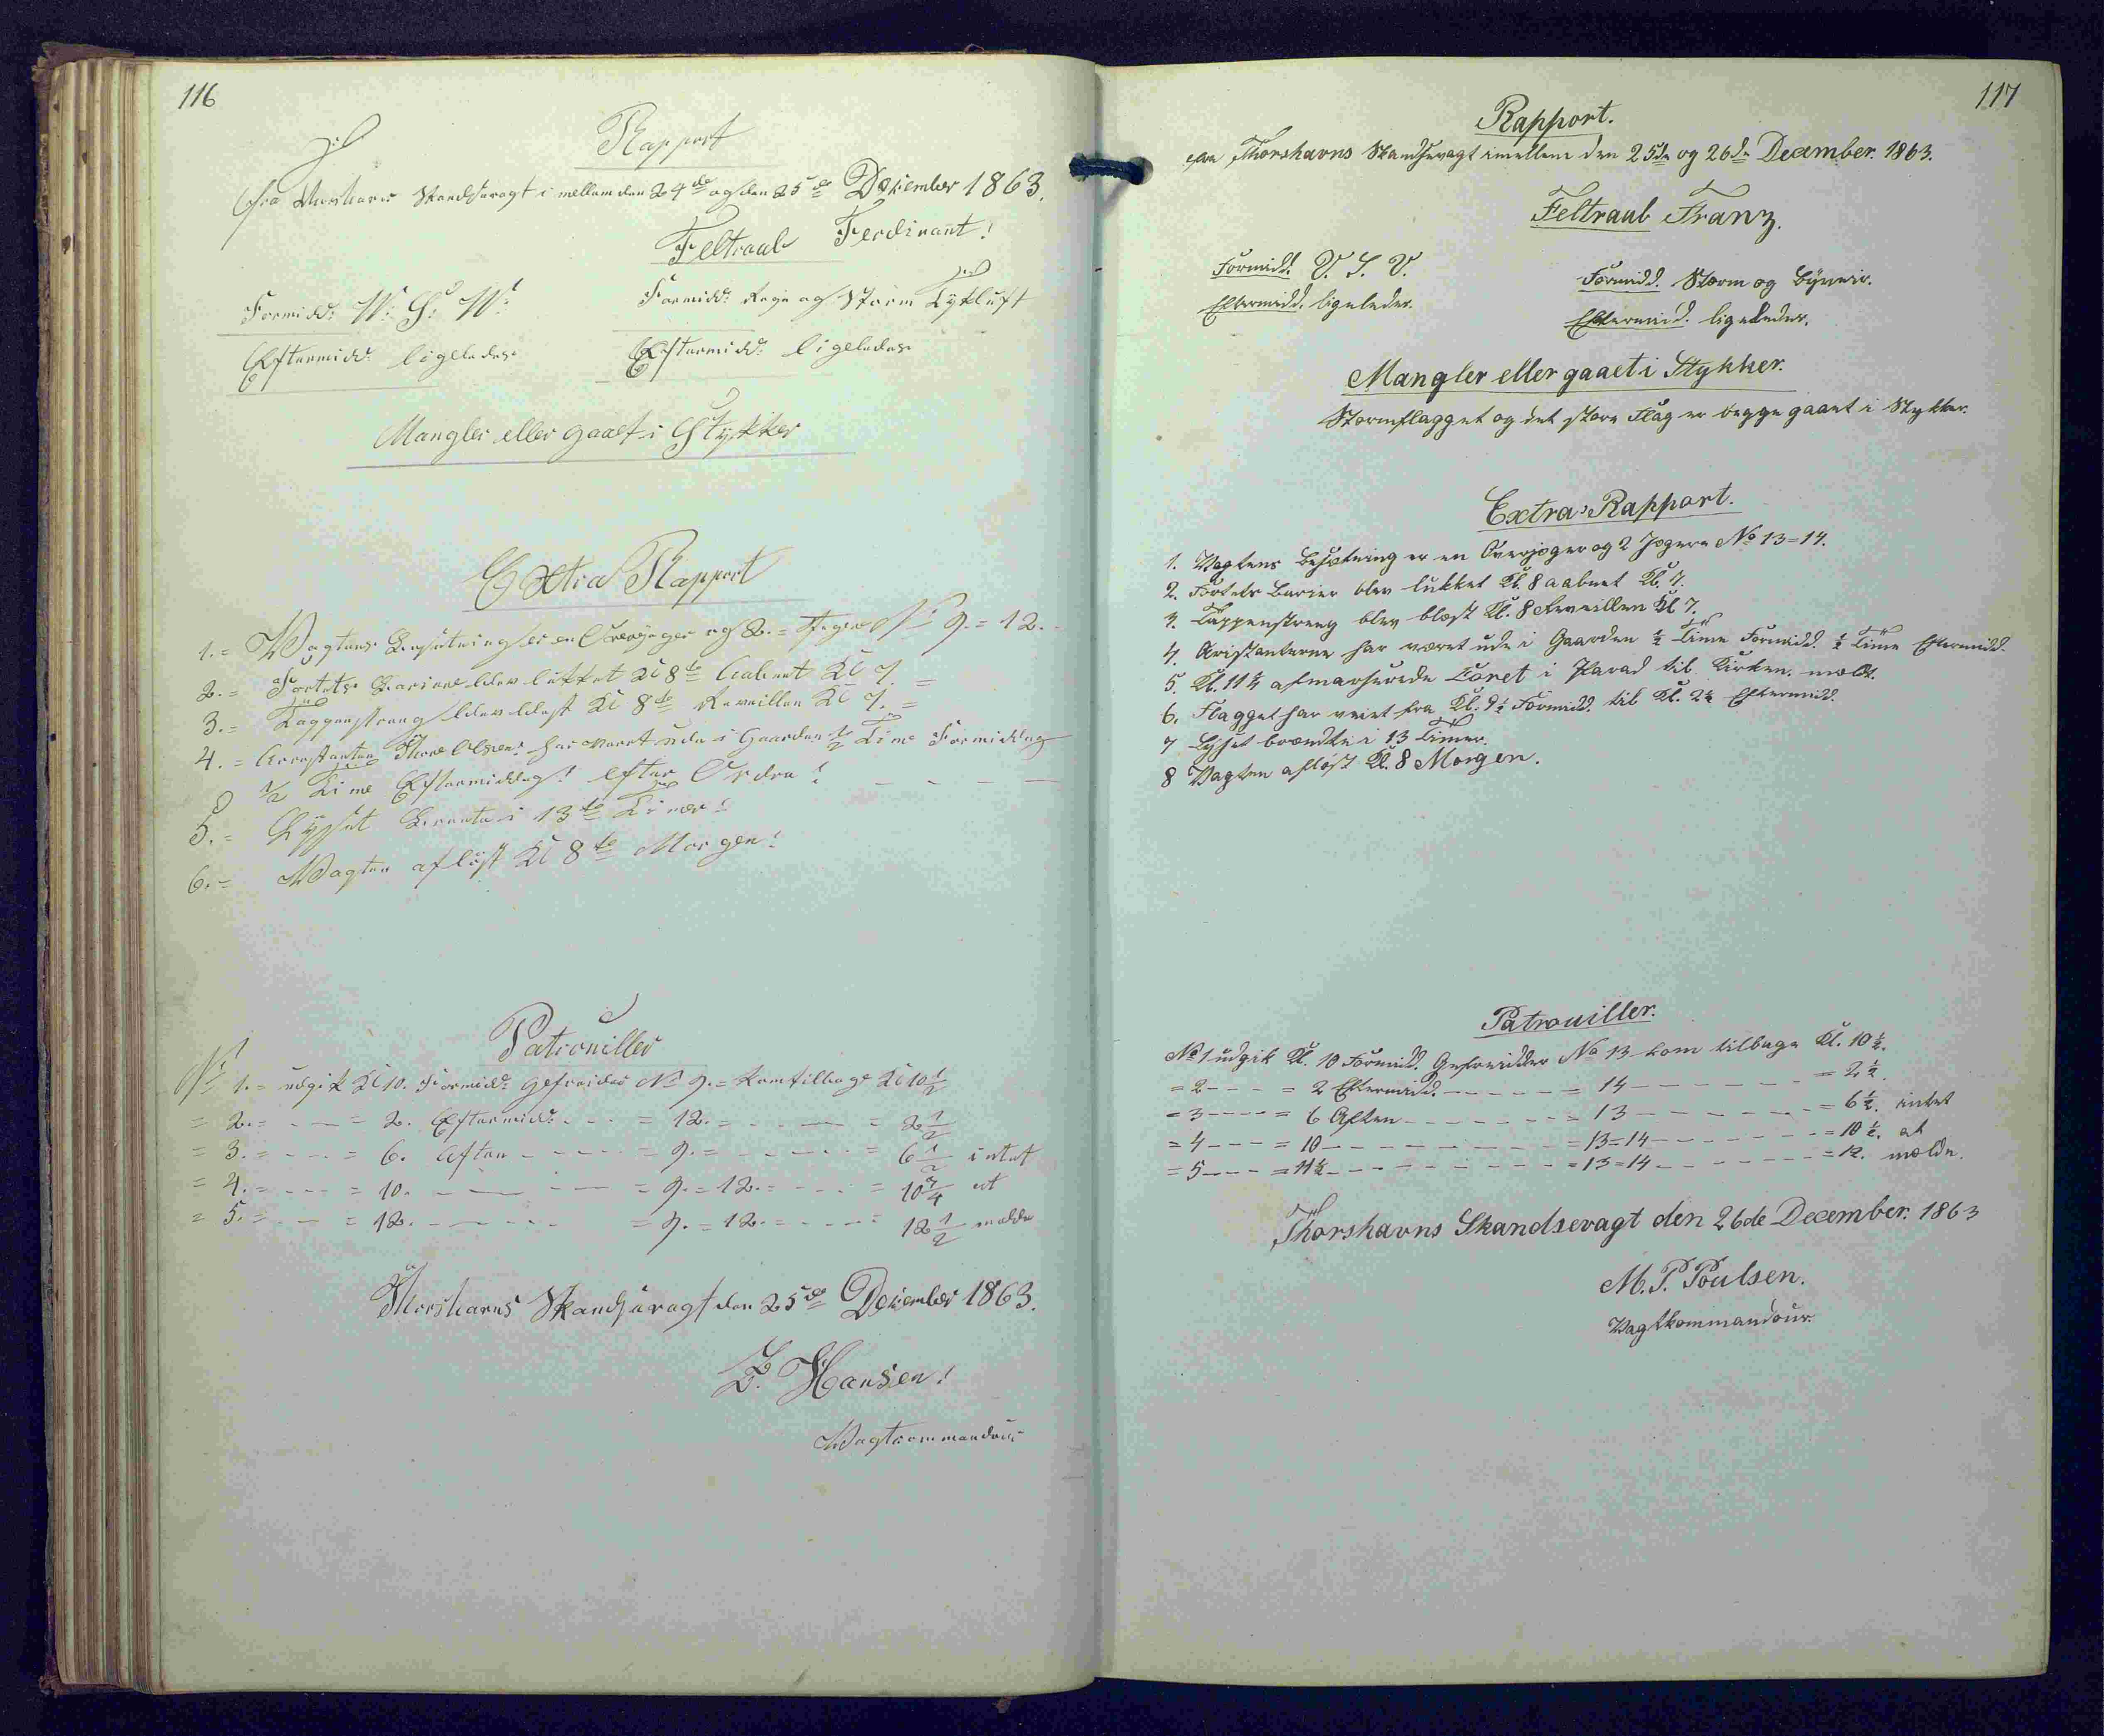 116
Rapport
fra Thorshavns Skandsevagt i mellem den 24de og den 25de December 1863.
Feltraab Ferdinant!
Formidd: W: S: W:
Formidd: Regn og Storm Tykluft
Eftermidd: ligeledes
Eftermidd: ligeledes
Mangler eller gaaet i Stykker
Extra Rapport
1.= Vagtens Besætning er en Overjæger og 2.= Jægere No 9.=12.
2.= Fortets Bariere blev lukket Kl 8te Aabnet Kl 7.=
3.= Tappenstreng blev blæst Kl 8te Reveillen Kl 7.=
4.= Arrestanten Thore Olsen har været ude i Gaarden 1/2 Time Formiddag
1/2 Time Eftermiddag! efter Ordre!
5.= Lyset brænte i 13te Timer!
6.= Vagten aflöst Kl 8te Morgen!
Patrouiller
No 1.= udgik Kl 10. Formidd: Gefreider No 9.= kom tilbage Kl 10 1/2
= 2.= - - - = 2. Eftermidd: - - - = 12.= - - - = 2 1/2
= 3.= - - - = 6. Aften - - - = 9.= - - - = 6 1/2 intet
= 4.= - - - = 10. - - - = 9.=12.= - - - = 10 3/4 at
= 5.= - - - = 12. - - - = 9.=12.= - - - = 12 1/2 melde
Thorshavns Skandsevagt den 25de December 1863.
Z. Hansen!
Vagtcommandour
117
Rapport.
fra Thorshavns Skandsevagt imellem den 25de og 26de December. 1863.
Feltraab Franz.
Formidd. V. S. V.
Formidd. Storm og Byveir.
Eftermidd. ligeledes.
Eftermidd. ligeledes.
Mangler eller gaaet i Stykker.
Stormflagget og det store Flag er begge gaaet i Stykker.
Extra=Rapport.
1. Vagtens Besætning er en Overjæger og 2 Jægere No 13=14.
2. Fortets Barier blev lukket Kl. 8 aabnet Kl. 7.
3. Tappenstreng blev blæst Kl. 8 Reveillen Kl 7.
4. Aristanterne har været ude i Gaarden 1/2 Time Formidd. 1/2 Time Eftermidd.
5. Kl. 11 1/4 afmarserede Coret i Parad til Kirken. meldt.
6. Flagget har veiet fra Kl. 9 1/2 Formidd. til Kl. 2 1/2 Eftermidd.
7 Lyset brændte i 13 Timer.
8 Vagten aflöst Kl. 8 Morgen.
Patrouiller.
No 1 udgik Kl. 10 Formidd. Gefreidder No 13 kom tilbage Kl. 10 1/2.
= 2 - - - = 2 Eftermidd. - - - = 14 - - - = 2 1/2.
= 3 - - - = 6 Aften - - - = 13 - - - = 6 1/2. intet
= 4 - - - = 10 - - - = 13=14 - - - = 10 1/2. at
= 5 - - - = 11 1/2 - - - = 13=14 - - - = 12. melde.
Thorshavns Skandsevagt den 26de December. 1863
M. P. Poulsen.
Vagtkommandour.